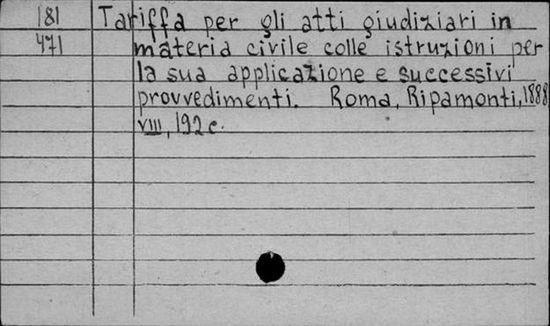 181 Tariffa per gli atti giudiziari in
471 materia civile colle istruzioni per
la sua applicazione e successivi
provvedimenti. Roma, Ripamonti, 1888
VIII, 192 c.